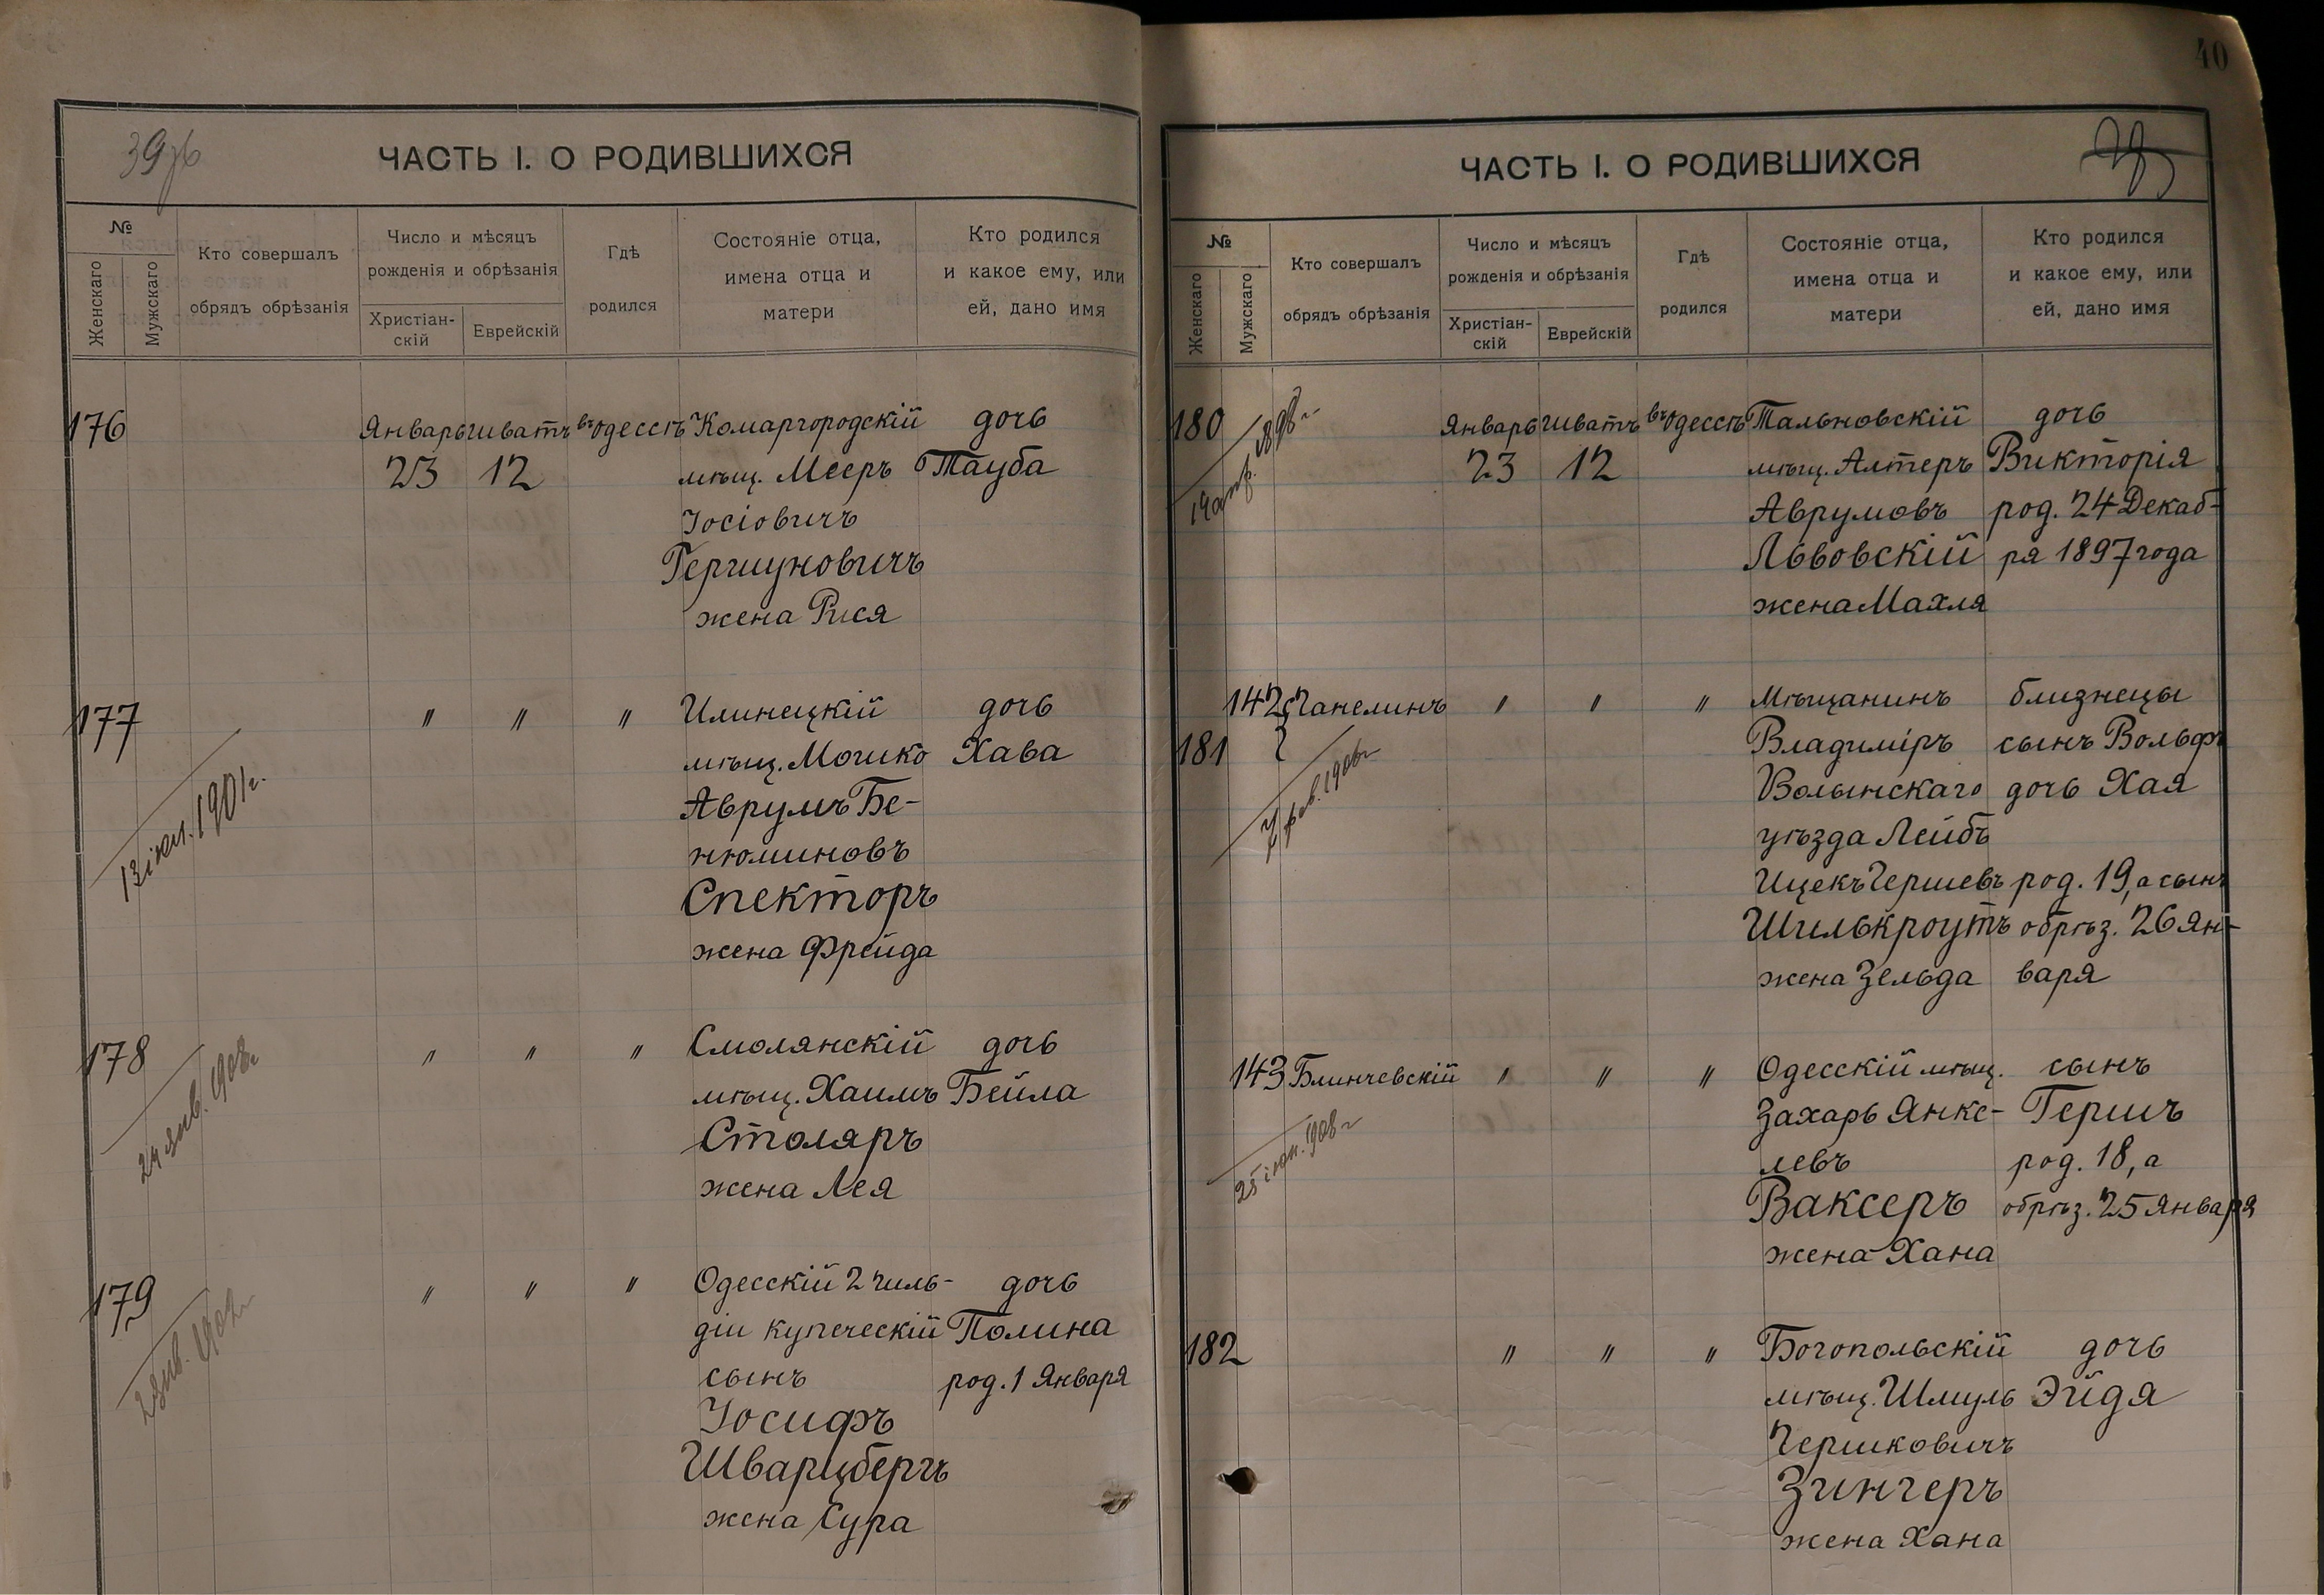 39об
ЧАСТЬ I. О РОДИВШИХСЯ
№
Женскаго
Мужскаго
Кто совершалъ
обрядъ обрѣзанія
Число и мѣсяцъ
рожденія и обрѣзанія
Христіан-
скій
Еврейскій
Гдѣ
родился
Состояніе отца,
имена отца и
матери
Кто родился
и какое ему, или
ей, дано имя
176
Январь Шватъ въ Одессѣ Комаргородскій дочь
23 12 мѣщ. Мееръ Тауба
Іосіовичъ
Гершуновичъ
жена Рися
177 " " " Илинецкій дочь
мѣщ. Мошко Хава
13 іюл. 1901г.
Аврумъ Бе-
нюминовъ
Спекторъ
жена Фрейда
178 " " " Смолянскій дочь
24 янв. 1908г
мѣщ. Хаимъ Бейла
Столяръ
жена Лея
179 " " " Одесскій 2 гиль-
дочь
діи купеческій Полина
сынъ род. 1 Января
Іосифъ
Шварцбергъ
жена Сура
40
ЧАСТЬ I. О РОДИВШИХСЯ
№
Женскаго
Мужскаго
Кто совершалъ
обрядъ обрѣзанія
Число и мѣсяцъ
рожденія и обрѣзанія
Христіан-
скій
Еврейскій
Гдѣ
родился
Состояніе отца,
имена отца и
матери
Кто родился
и какое ему, или
ей, дано имя
180 Январь Шватъ въ Одессѣ Тальновскій дочь
23 12 мѣщ. Алтеръ Викторія
Аврумовъ род. 24 Декаб-
Львовскій ря 1897 года
жена Махля
142 Ганелинъ " " " Мѣщанинъ близнецы
181 Владиміръ сынъ Вольфъ
Волынскаго дочь Хая
уѣзда Лейбъ
Ицекъ Гершевъ род. 19, а сынъ
Шилькроутъ обрѣз. 26 Ян-
жена Зельда варя
143 Блинчевскій " " " Одесскій мѣщ. сынъ
Захарь Янке- Гершъ
левъ род. 18, а
Ваксеръ обрѣз. 25 Января
жена Хана
182 " " " Богопольскій дочь
мѣщ. Шмуль Эйдя
Гершковичъ
Зингеръ
жена Хана